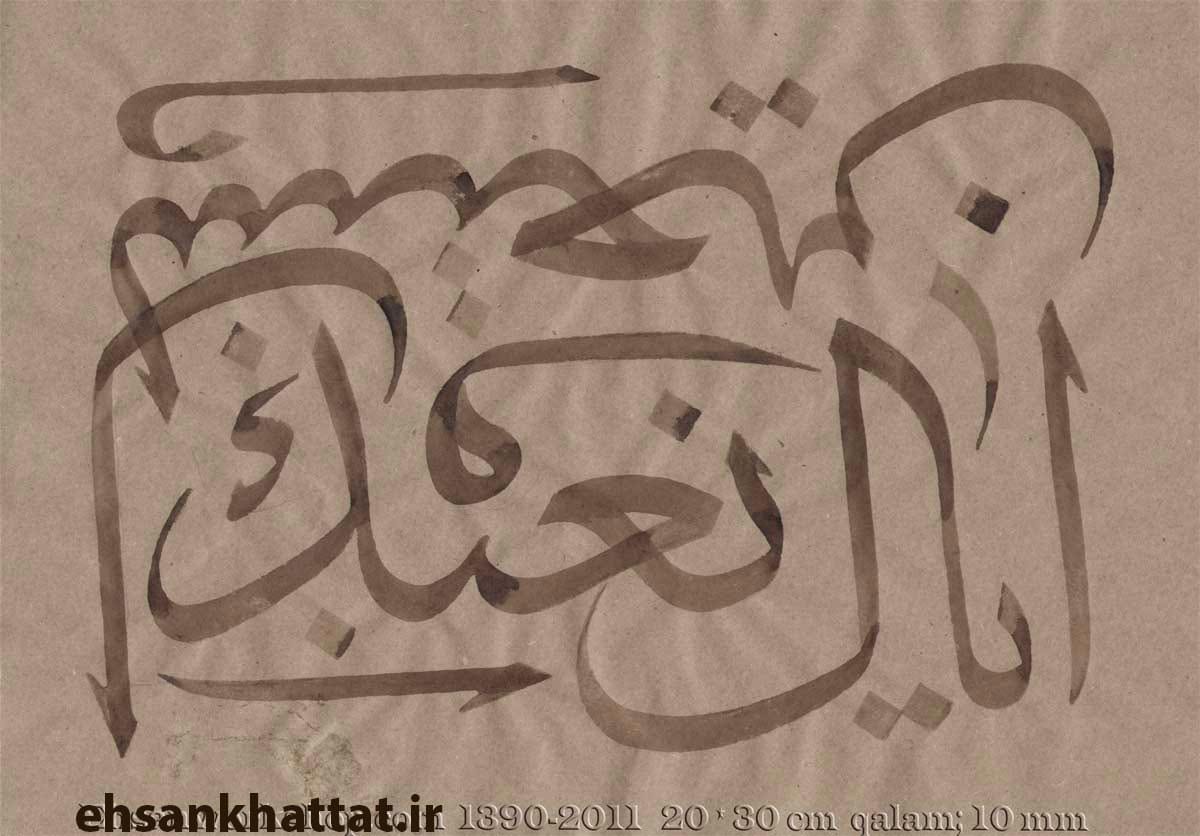 اياك نعبد و نستعين
ehsankhattat.ir 1390-2011 20*30 cm qalam; 10 mm